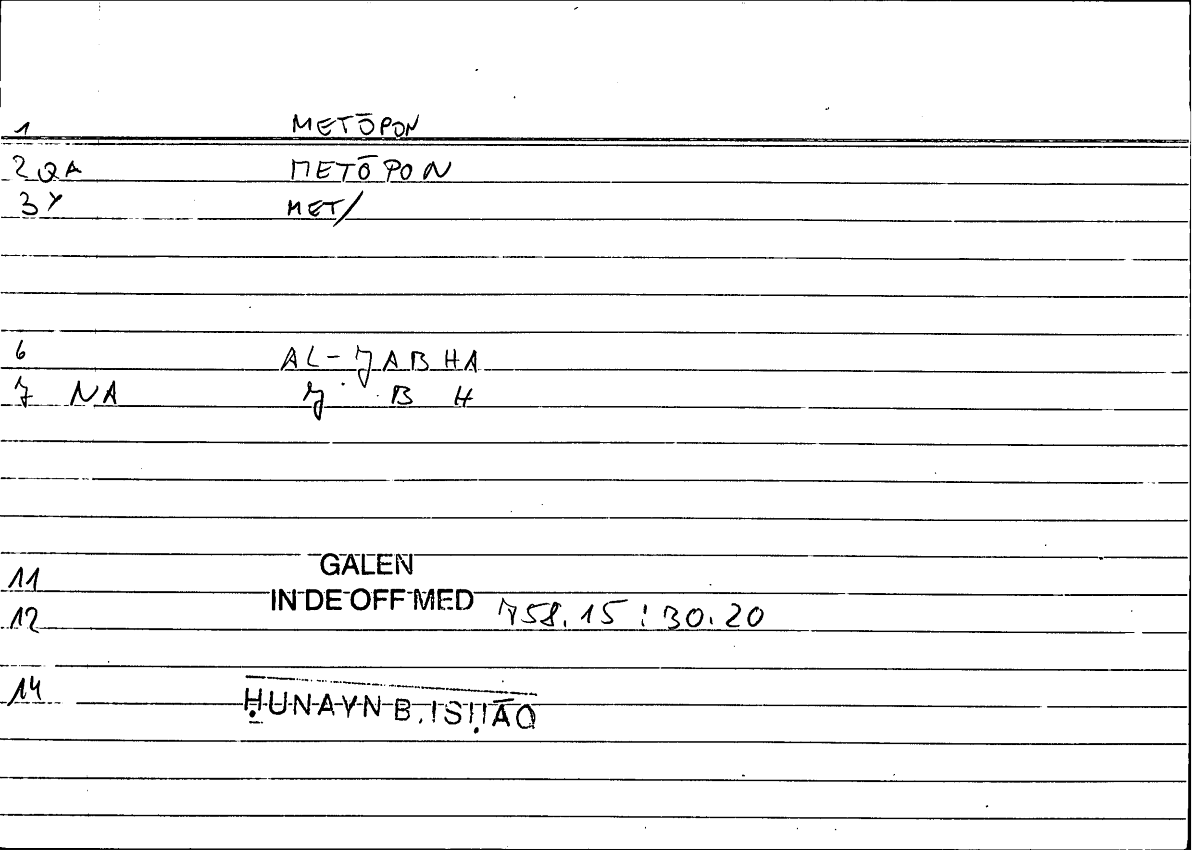 1 METŌPON
2 QA METŌPON
3 Y MET/
6 AL-JABHA
7 NA J B H
11 GALEN
12 IN DE OFF MED 758.15 : 30.20
14 ḤUNAYN B. ISḤĀQ